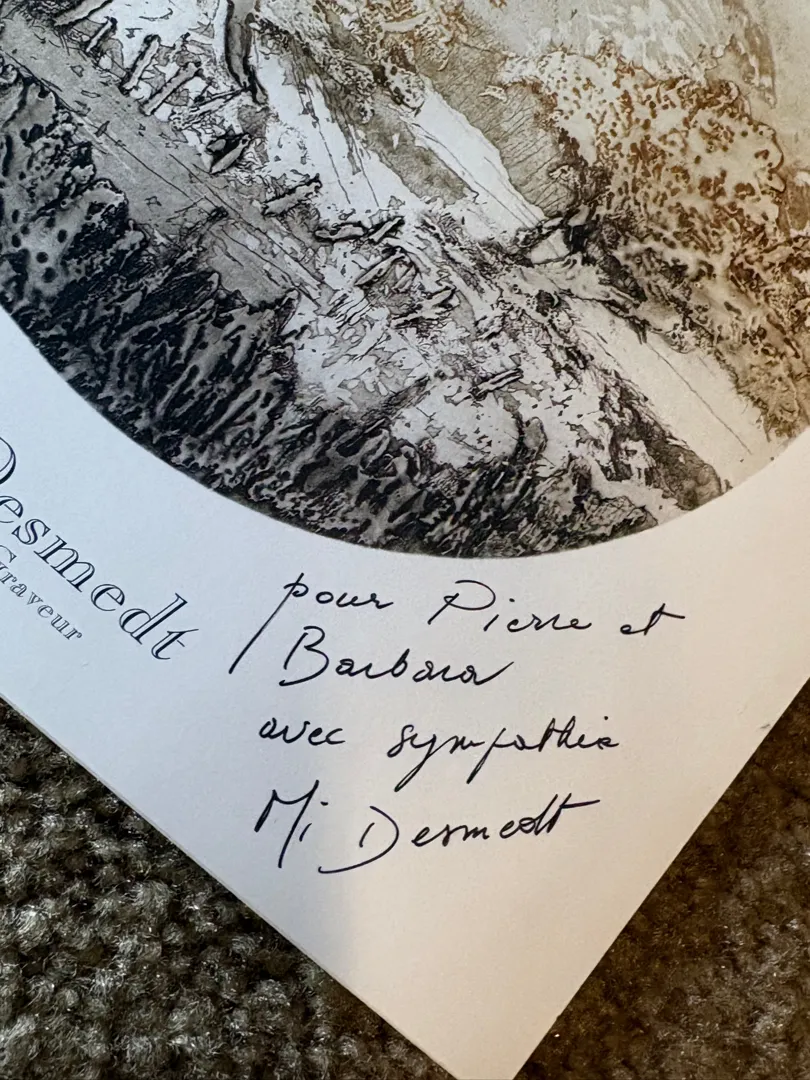 Desmedt
Graveur
pour Pierre et
Barbara
avec sympathie
Mi Desmedt